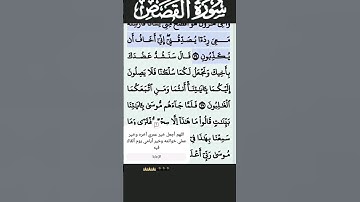 سُورَةُ القَصَصِ
مَعِىَ رِدْءًا يُصَدِّقُنِىٓ إِنِّىٓ أَخَافُ أَن
يُكَذِّبُونِ ۞ قَالَ سَنَشُدُّ عَضُدَكَ
بِأَخِيكَ وَنَجْعَلُ لَكُمَا سُلْطَٰنًا فَلَا يَصِلُونَ
إِلَيْكُمَا بِـَٔايَٰتِنَآ أَنتُمَا وَمَنِ ٱتَّبَعَكُمَا
ٱلْغَٰلِبُونَ ۞ فَلَمَّا جَآءَهُم مُّوسَىٰ بِـَٔايَٰتِنَا
بَيِّنَٰتٍ قَالُوا۟ مَا هَٰذَآ إِلَّا
سَمِعْنَا بِهَٰذَا فِىٓ
مُوسَىٰ رَبِّىٓ أَعْلَمُ
اللهم أجعل خير عمري آخره وخير
عملي خواتمه وخير أيامي يوم ألقاك
فيه